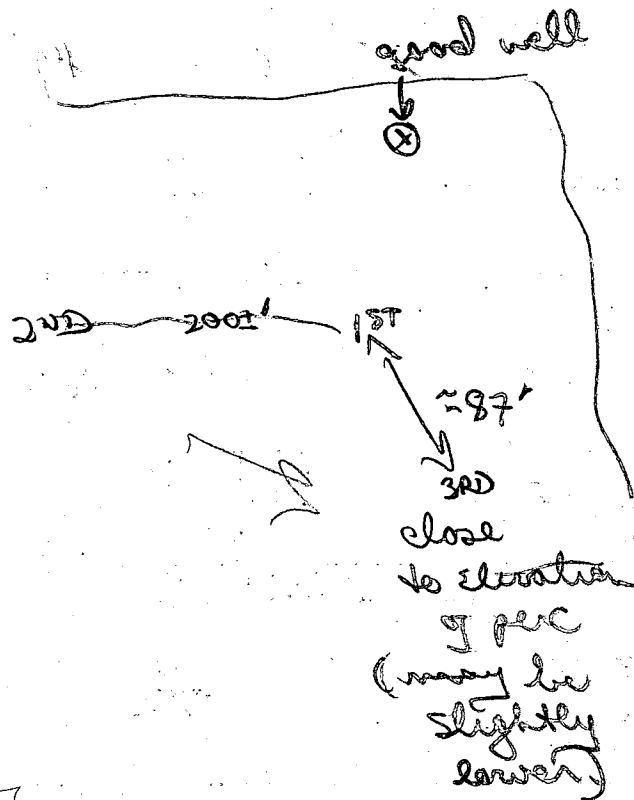 good well
X
2ND 200±' 1ST
≈87'
3RD
close
to elevation
of perc
(may be
slightly
lower)